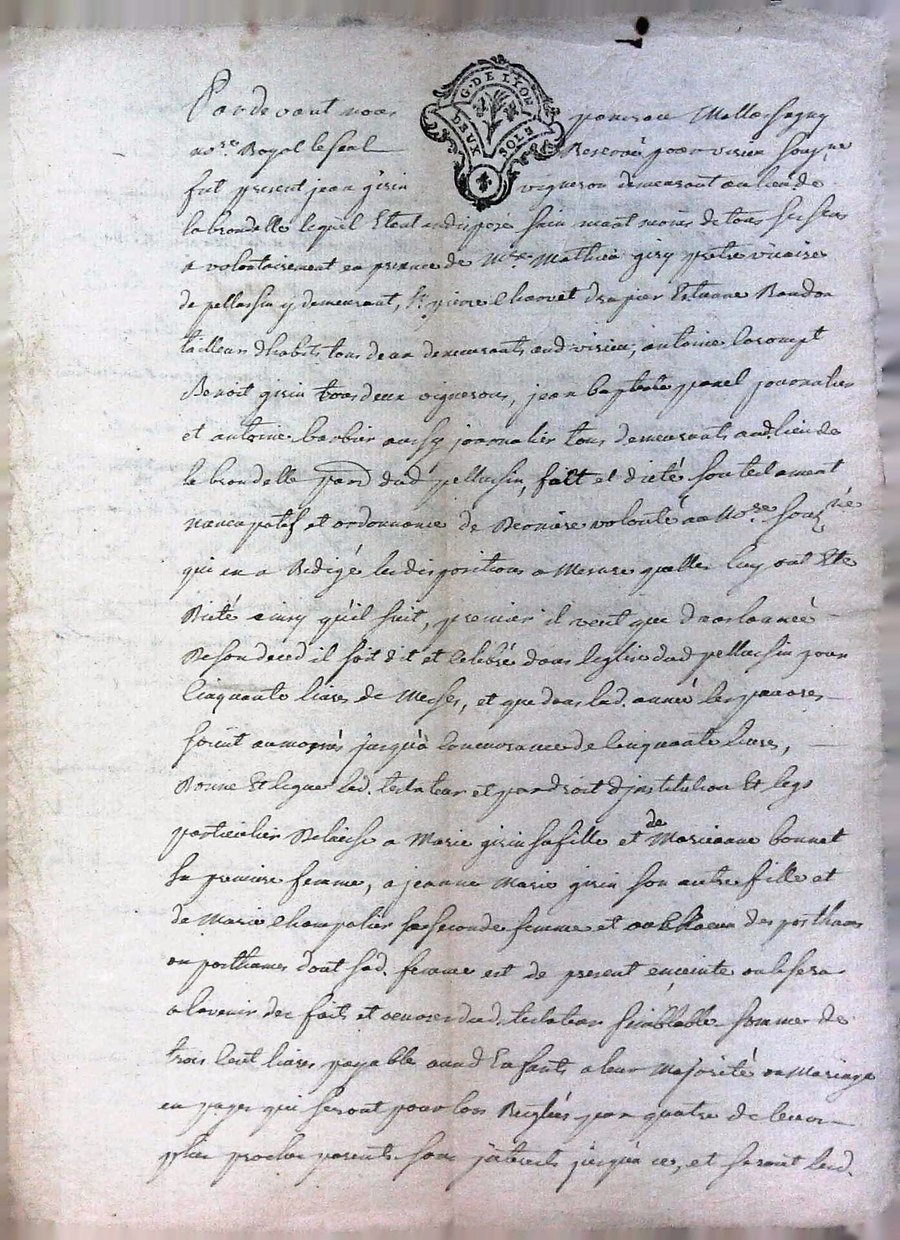 G. DE LYON
DEUX SOLS
Pardevant nous
no.re Royal le seul Reservé pour virieu soug.né
fut present jean girin vigneron demeurant au lieu de
la brondelle lequel Etant indisposé sain neant moins de tous ses sens
a volontairement en presence de M.re Mathieu giry prêtre vicaire
de pellussin y demeurant, S.r pierre Charvet drapier Estienne Baudon
tailleur dhabits tous deux demeurants aud virieu, antoine
Benoit girin tous deux vignerons, jean baptiste journalier
et antoine barbier aussy journalier tous demeurants aud. lieu de
la brondelle par.d dud pellussin, fait et dicté son testament
nuncupatif et ordonnance de Derniere volonté a no.re soug.né
qui en a Redigé les dispositions a Mesure quelles luy ont Eté
Dicté ainsy qu'il suit, premier il veut que dans lannée
De son deced il soit dit et celebré dans leglise dud pellussin pour
Cinquante livres de Messes, et que dans lad. année les pauvres
soient aumonés jusqu'à concurrance de cinquante livres,
Donne Et legue led. testateur et par droit d'institution Et legs
particulier Delaisse a Marie girin sa fille et de Marieanne bonnet
sa premiere femme, a jeanne Marie girin son autre fille et
de Marie Champalier sa seconde femme et au posthume
ou posthumes dont sad. femme est de present enceinte ou le sera
a lavenir des faits et oeuvres dud. testateur semblable somme de
trois Cent livres payable auxd Enfants a leur Majorité ou Mariage
en payes qui seront pour lors Reglés par quatre de leurs
plus proches parents sans interets jusqu'a ces, et seront lesd.